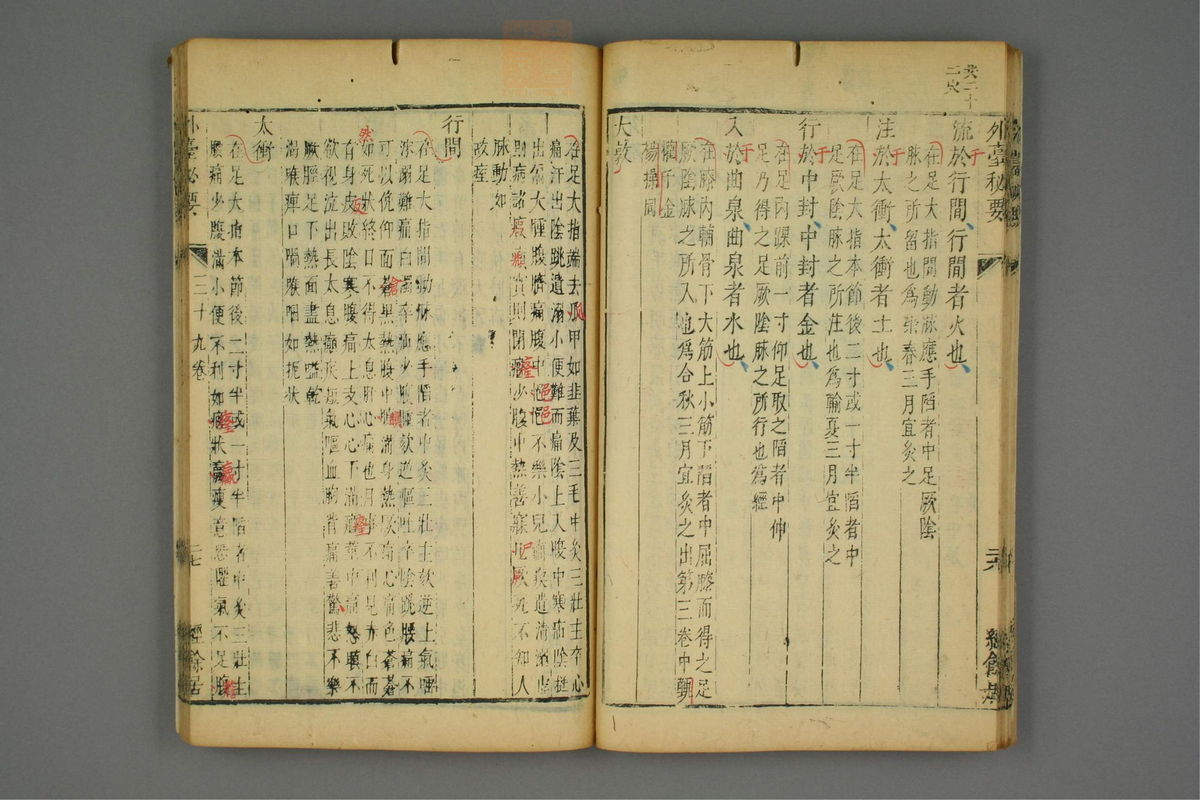 外臺秘要
共二十
二穴
流於行間行間者火也
在足大指間動脉應手陷者中足厥陰
脉之所留也為滎春三月宜灸之
注於太衝太衝者土也
在足大指本節後二寸或一寸半陷者中
足厥陰脉之所注也為腧夏三月宜灸之
行於中封中封者金也
在足內踝前一寸仰足取之陷者中伸
足乃得之足厥陰脉之所行也為經
入於曲泉曲泉者水也
在膝內輔骨下大筋上小筋下陷者中屈膝而得之足
厥陰脉之所入也為合秋三月宜灸之出第三卷中甄
權千金
楊操同
大敦
在足大指端去爪甲如韭葉及三毛中灸三壯主卒心
痛汗出陰跳遺溺小便難而痛陰上入腹中寒疝陰挺
出偏大腫腹臍痛腹中悒悒不樂小兒癇瘈遺清溺虛
則病諸瘕癩實則閉癃少腹中熱善寐尸厥死不知人
脉動如
故痓
行間
在足大指間動脉應手陷者中灸三壯主欬逆上氣唾
沫
可以俛仰面蒼黑熱腹中䐜滿身熱厥痛心痛色蒼蒼
如死狀終日不得太息肝心痛也月事不利見赤白而
有身皮敗陰寒腹痛上支心心下滿癃莖中痛怒瞋不
欲視泣出長太息癲疾短氣嘔血胸背痛善驚悲不樂
厥脛足下熱面盡熱嗌乾
渴喉痹口喎喉咽如扼狀
太衝
在足大指本節後二寸半或一寸半陷者中灸三壯主
腰痛少腹滿小便不利如癃狀羸瘦意恐懼氣不足腹
外臺必要
三十九卷
二七
經餘居